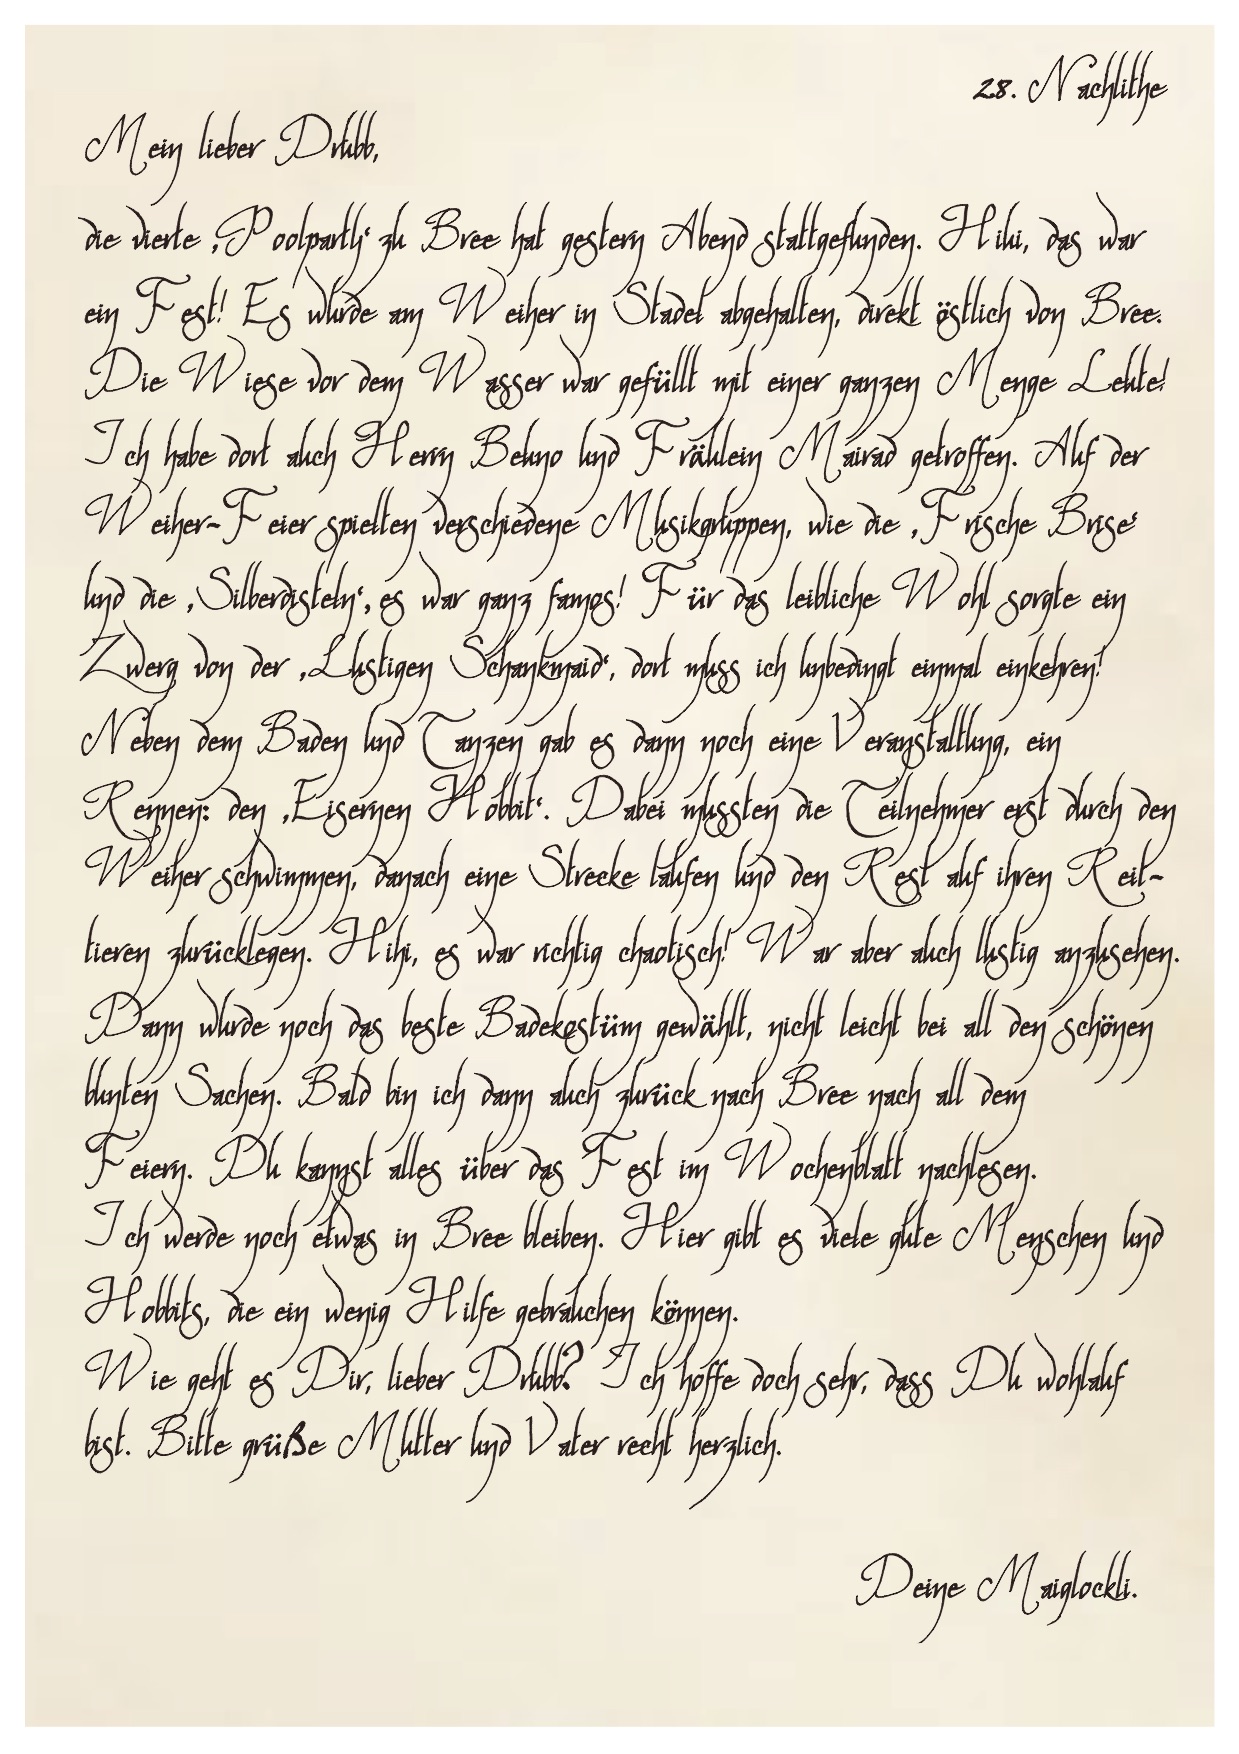 28. Nachlithe
Mein lieber Drubb,
die vierte ‚Poolparth‘ zu Bree hat gestern Abend stattgefunden. Hihi, das war
ein Fest! Es wurde am Weiher in Stadel abgehalten, direkt östlich von Bree.
Die Wiese vor dem Wasser war gefüllt mit einer ganzen Menge Leute!
Ich habe dort auch Herrn Beuno und Fräulein Mairad getroffen. Auf der
Weiher-Feier spielten verschiedene Musikgruppen, wie die ‚Frische Brise‘
und die ‚Silberdisteln‘, es war ganz famos! Für das leibliche Wohl sorgte ein
Zwerg von der ‚Lustigen Schankmaid‘, dort muss ich unbedingt einmal einkehren!
Neben dem Baden und Tanzen gab es dann noch eine Veranstaltung, ein
Rennen: den ‚Eisernen Hobbit‘. Dabei mussten die Teilnehmer erst durch den
Weiher schwimmen, danach eine Strecke laufen und den Rest auf ihren Reit-
tieren zurücklegen. Hihi, es war richtig chaotisch! War aber auch lustig anzusehen.
Dann wurde noch das beste Badekostüm gewählt, nicht leicht bei all den schönen
bunten Sachen. Bald bin ich dann auch zurück nach Bree nach all dem
Feiern. Du kannst alles über das Fest im Wochenblatt nachlesen.
Ich werde noch etwas in Bree bleiben. Hier gibt es viele gute Menschen und
Hobbits, die ein wenig Hilfe gebrauchen können.
Wie geht es Dir, lieber Drubb? Ich hoffe doch sehr, dass Du wohlauf
bist. Bitte grüße Mutter und Vater recht herzlich.
Deine Maiglockli.